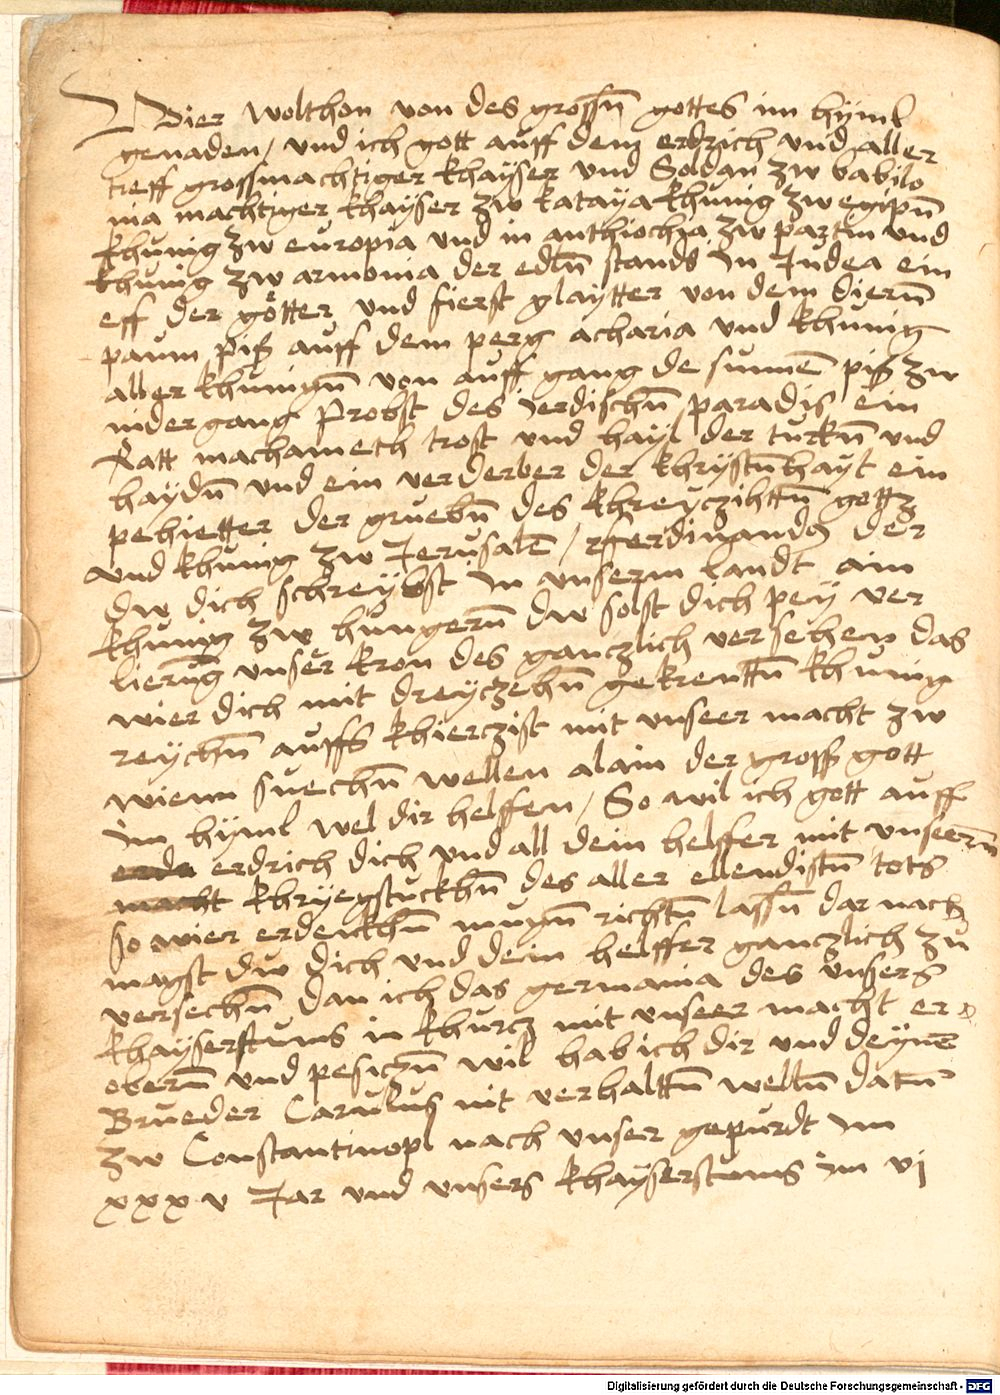 Wier wolthon von des grossn̄ gottes im hÿml
genaden / und ich gott auff dem erdrich und aller
treff grossmachtiger khayser und Soldan zw babilo
nia machtiger khayser zw kataya khunig zw egiptn̄
khunig zw europia und in anthiochia zw partin und
khunig zw armonia der edln̄ stands In Indea ein
eff der götter und fierst glaytter von dem diern̄
paum piß auff dem perg acharia und khunig
aller khunign̄ von auff gang de sunnē piß zw
nider gang Probst des Ierdischn̄ paradis ein
Ratt machameth trost und hayl der turkn̄ und
haydn̄ und ein verderber der khrÿstn̄hayt ein
pehietter der gruebn̄ des khreyczihttn̄ gottz
und khunig zw Ierusalē / fferdinandus der
dw dich schreybst In unserm landt ain
khunig zw hungern̄ dw solst dich pey ver
lierung unser kron des ganczlich versehen das
wier dich mit dreyczehn̄ gekrenttn̄ khunig
reychn̄ auffs khierczist mit unseer macht zw
wienn suechn̄ wellen alain der gross gott
Im hÿml wel dir helffen / So wil ich gott auff
erdrich dich und all dein helffer mit unseern̄
khryegstuckhn̄ des aller ellendistn̄ tots
so wier erdenckhn̄ mugn̄ richtn̄ lassn̄ dar nach
magst dw dich und dein helffer ganczlich zu
versechn̄ dan ich das germania des unsers
khayserstums in khurcz mit unseer macht er
obern̄ und pesiczn̄ wil hab ich dir und deynē
Brueder Carulus nit verhalttn̄ welln̄ datū
zw Constantinopl nach unser gepurdt Im
xxxv Jar und unsers khayserstums Im vj
Digitalisierung gefördert durch die Deutsche Forschungsgemeinschaft - DFG